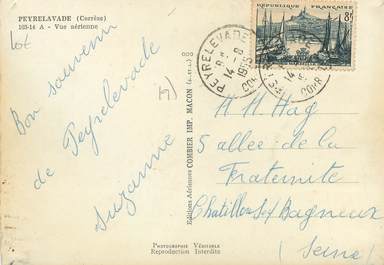 PEYRELEVADE (Corrèze)
103-14 A - Vue aérienne
lot
Bon souvenir
de Peyrelevade
Suzanne
Editions Aériennes COMBIER IMP. MACON
PHOTOGRAPHIE VÉRITABLE
Reproduction Interdite
REPUBLIQUE FRANÇAISE
8F
PEYRELEVADE
14 -8
1955
M M Hag
5 allée de la
Fraternité
Chatillon s/s Bagneux
(Seine)